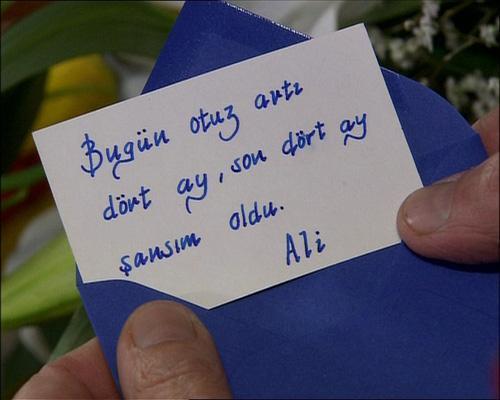 Bugün otuz artı
dört ay, son dört ay
şansım oldu.
Ali